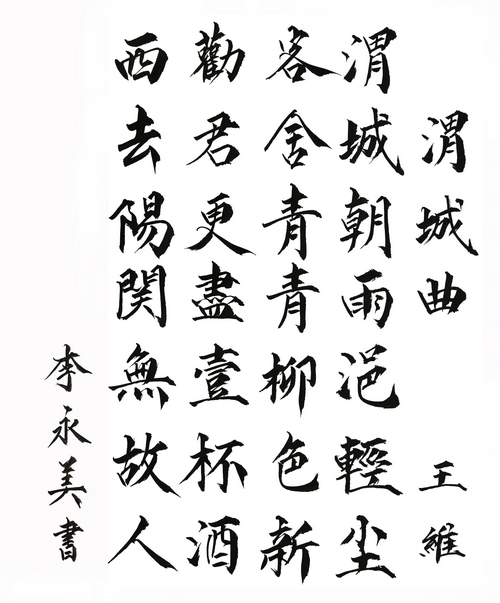 渭城曲 王維
渭城朝雨浥輕尘
客舍青青柳色新
勸君更盡壹杯酒
西去陽関無故人
李永美書